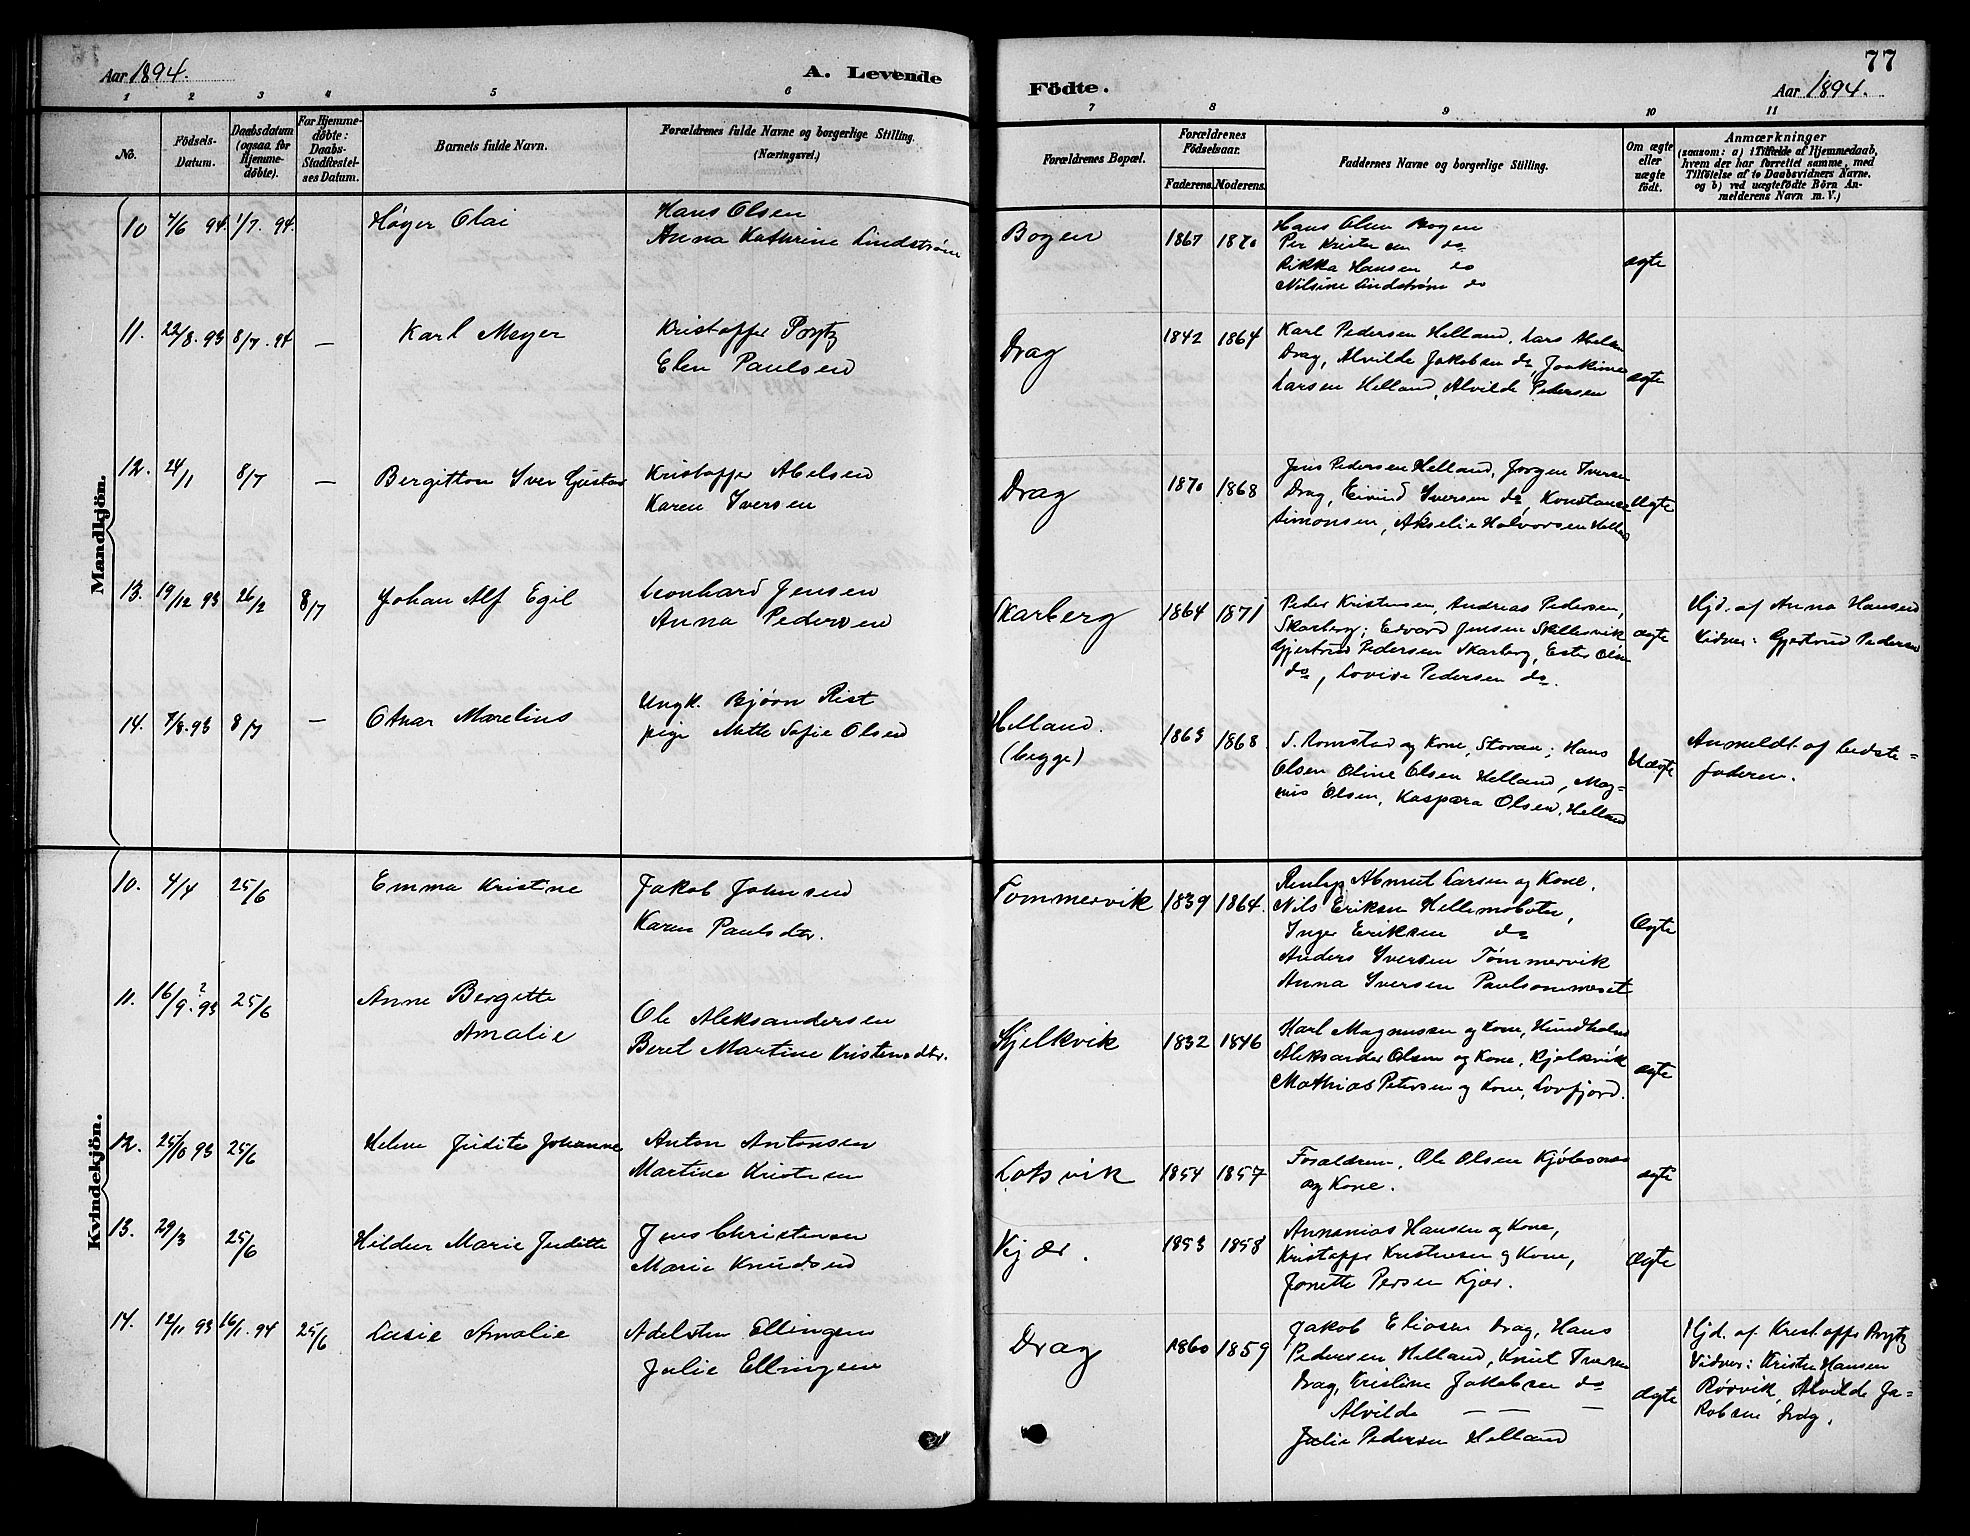 Aar 1894. A. Levende Födte. Aar 1894. 77
1 2 3 4 5 6 7 8 9 10 11
No.
Födsels-Datum.
Daabsdatum (ogsaa for Hjemme-döbte).
For Hjemme-döbte: Daabs-Stadfæstel-ses Datum.
Barnets fulde Navn.
Forældrenes fulde Navne og borgerlige Stilling. (Næringsvei.)
Forældrenes Bopæl.
Forældrenes Födselsaar.
Faderens. Moderens.
Faddernes Navne og borgerlige Stilling.
Om ægte eller uægte födt.
Anmærkninger
(saasom: a) i Tilfælde af Hjemmedaab,
hvem der har forrettet samme, med
Tilföielse af to Daabsvidners Navne,
og b) ved uægtefödte Börn An-
melderens Navn m. V.)
Mandkjön.
10 7/6 94. 1/7. 94. Høyer Olai
Hans Olsen
Anna Kathrine Lindstrøm
Bogen 1867 1870
Hans Olsen Bogen
Per Kristensen do
Rikka Hansen do
Nilsine Lindstrøm do
ægte
11. 22/8. 93 8/7. 94 — Karl Meyer
Kristoffer Prytz
Elen Paulsen
Drag 1842 1864
Karl Pedersen Helland, Lars Abelsen
Drag, Alvilde Jakobsen do, Joakime
Larsen Helland, Alvilde Pedersen
ægte
12. 24/1 8/7 — Bergitton Iver Gustav
Kristoffer Abelsen
Karen Iversen
Drag 1870 1868
Jens Pedersen Helland, Jørgen Iversen
Drag, Eivind Iversen do, Konstanse
Simonsen, Akselie Halvorsen Helland
Uægte
13. 19/12 93 26/2 8/7 Johan Alf Egil
Leonhard Jensen
Anna Pedersen
Skarberg 1864 1871
Peder Kristensen, Andreas Pedersen,
Skarberg; Edvard Jensen Skillesvik
Gjertrud Pedersen Skarberg, Ester Olsen
do, Lovise Pedersen do.
ægte
Hjd. af Anna Hansen
Vidner: Gjertrud Pedersen
14. 7/8. 93 8/7 — Otnar Marelius
Ungk. Bjørn Rist
pige Mette Sofie Olsen
Helland.
(begge)
1868
S. Romstad og Kone, Storaa; Hans
Olsen Oline Olsen Helland, Mag-
nus Olsen, Kaspara Olsen, Helland
Uægte
Anmeldt af bedste-
faderen.
Kvindekjön.
10. 4/4 25/6 Emma Kristine
Jakob Johnsen
Karen Paulsdtr.
Tømmervik 1839 1864.
Abmut Larsen og Kone,
Nils Eriksen Hellemobotn,
Inger Eriksen do
Anders Iversen Tømmervik
Anna Iversen Paulsommeset
Ægte
11. 16/9? 93 25/6 Anne Bergitte
Amalie
Ole Aleksandersen
Beret Martine Kristensdtr.
Kjelkvik 1832 1846
Karl Magnussen og Kone, Hundholm
Aleksander Olsen og Kone, Kjelkvik
Mathias Petersen og Kone, Losfjord.
ægte
12. 25/10 93 25/6 Helene Judite Johanne
Anton Antonsen
Martine Kristensen
Lotsvik 1854 1857
Forældrene, Ole Olsen Kjøbsnes
og Kone.
ægte
13. 29/3 25/6 Hildur Marie Juditte
Jens Christensen
Marie Knudsen
Kjær. 1853 1858
Annanias Hansen og Kone,
Kristoffer Kristensen og Kone,
Jonette Persen Kjær.
Ægte
14. 12/11 93 16/1. 94 25/6 Lasie Amalie
Adelsten Ellingsen
Julie Ellingsen
Drag 1860 1859
Jakob Eliasen Drag, Hans
Pedersen Helland, Knut Iversen
Drag, Kristine Jakobsen do
Alvilde — — —
Julie Pedersen Helland
ægte
Hjd. af Kristoffer Prytz
Vidner: Kristen Hansen
Rørvik, Alvilde Ja-
kobsen Drag.